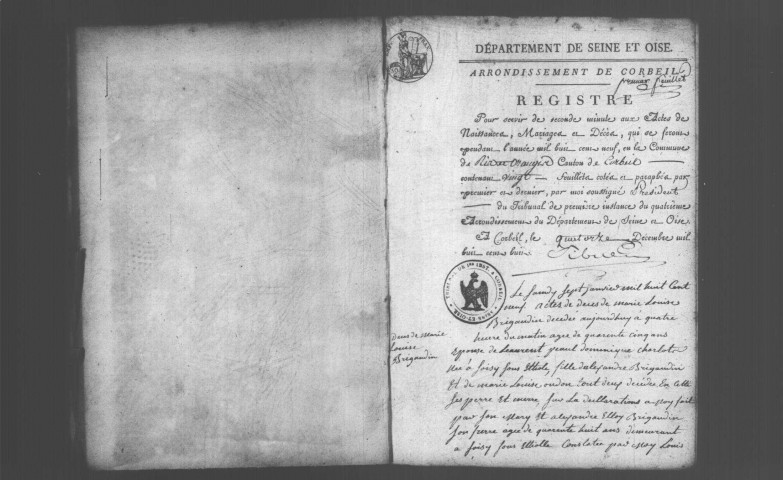 DÉPARTEMENT DE SEINE ET OISE.
ARRONDISSEMENT DE CORBEIL.
premier feuillet
REGISTRE
Pour servir de seconde minute aux Actes de
Naissances, Mariages et Décès, qui se feront
pendant l'année mil huit cent neuf, en la Commune
de Canton de Corbeil
contenant vingt feuillets cotés et paraphés par
premier et dernier, par moi soussigné Président
du Tribunal de première instance du quatrième
Arrondissement du Département de Seine et Oise.
A Corbeil, le quatorze Décembre mil
huit cent huit.
Le jeudy sept janvier mil huit Cent
neuf actes de deces de marie Louise
Brigaudin decedée aujourdhuy à quatre
heure du matin agée de quarente cinq ans
epouse de Laurent dominique charlot
née à soisy sous Etiole, fille dalexandre Brigaudin
Et de marie Louise oudon tout deux decédée En cette
ses perre Et merre, sur La declarations a moy fait
par son Mary Et alexandre Elloy Brigaudin
son frere agée de quarente huit ans demeurant
a soisy sous Etiolle Constatée par Moy Louis
deces de marie
Louise
Brigaudin